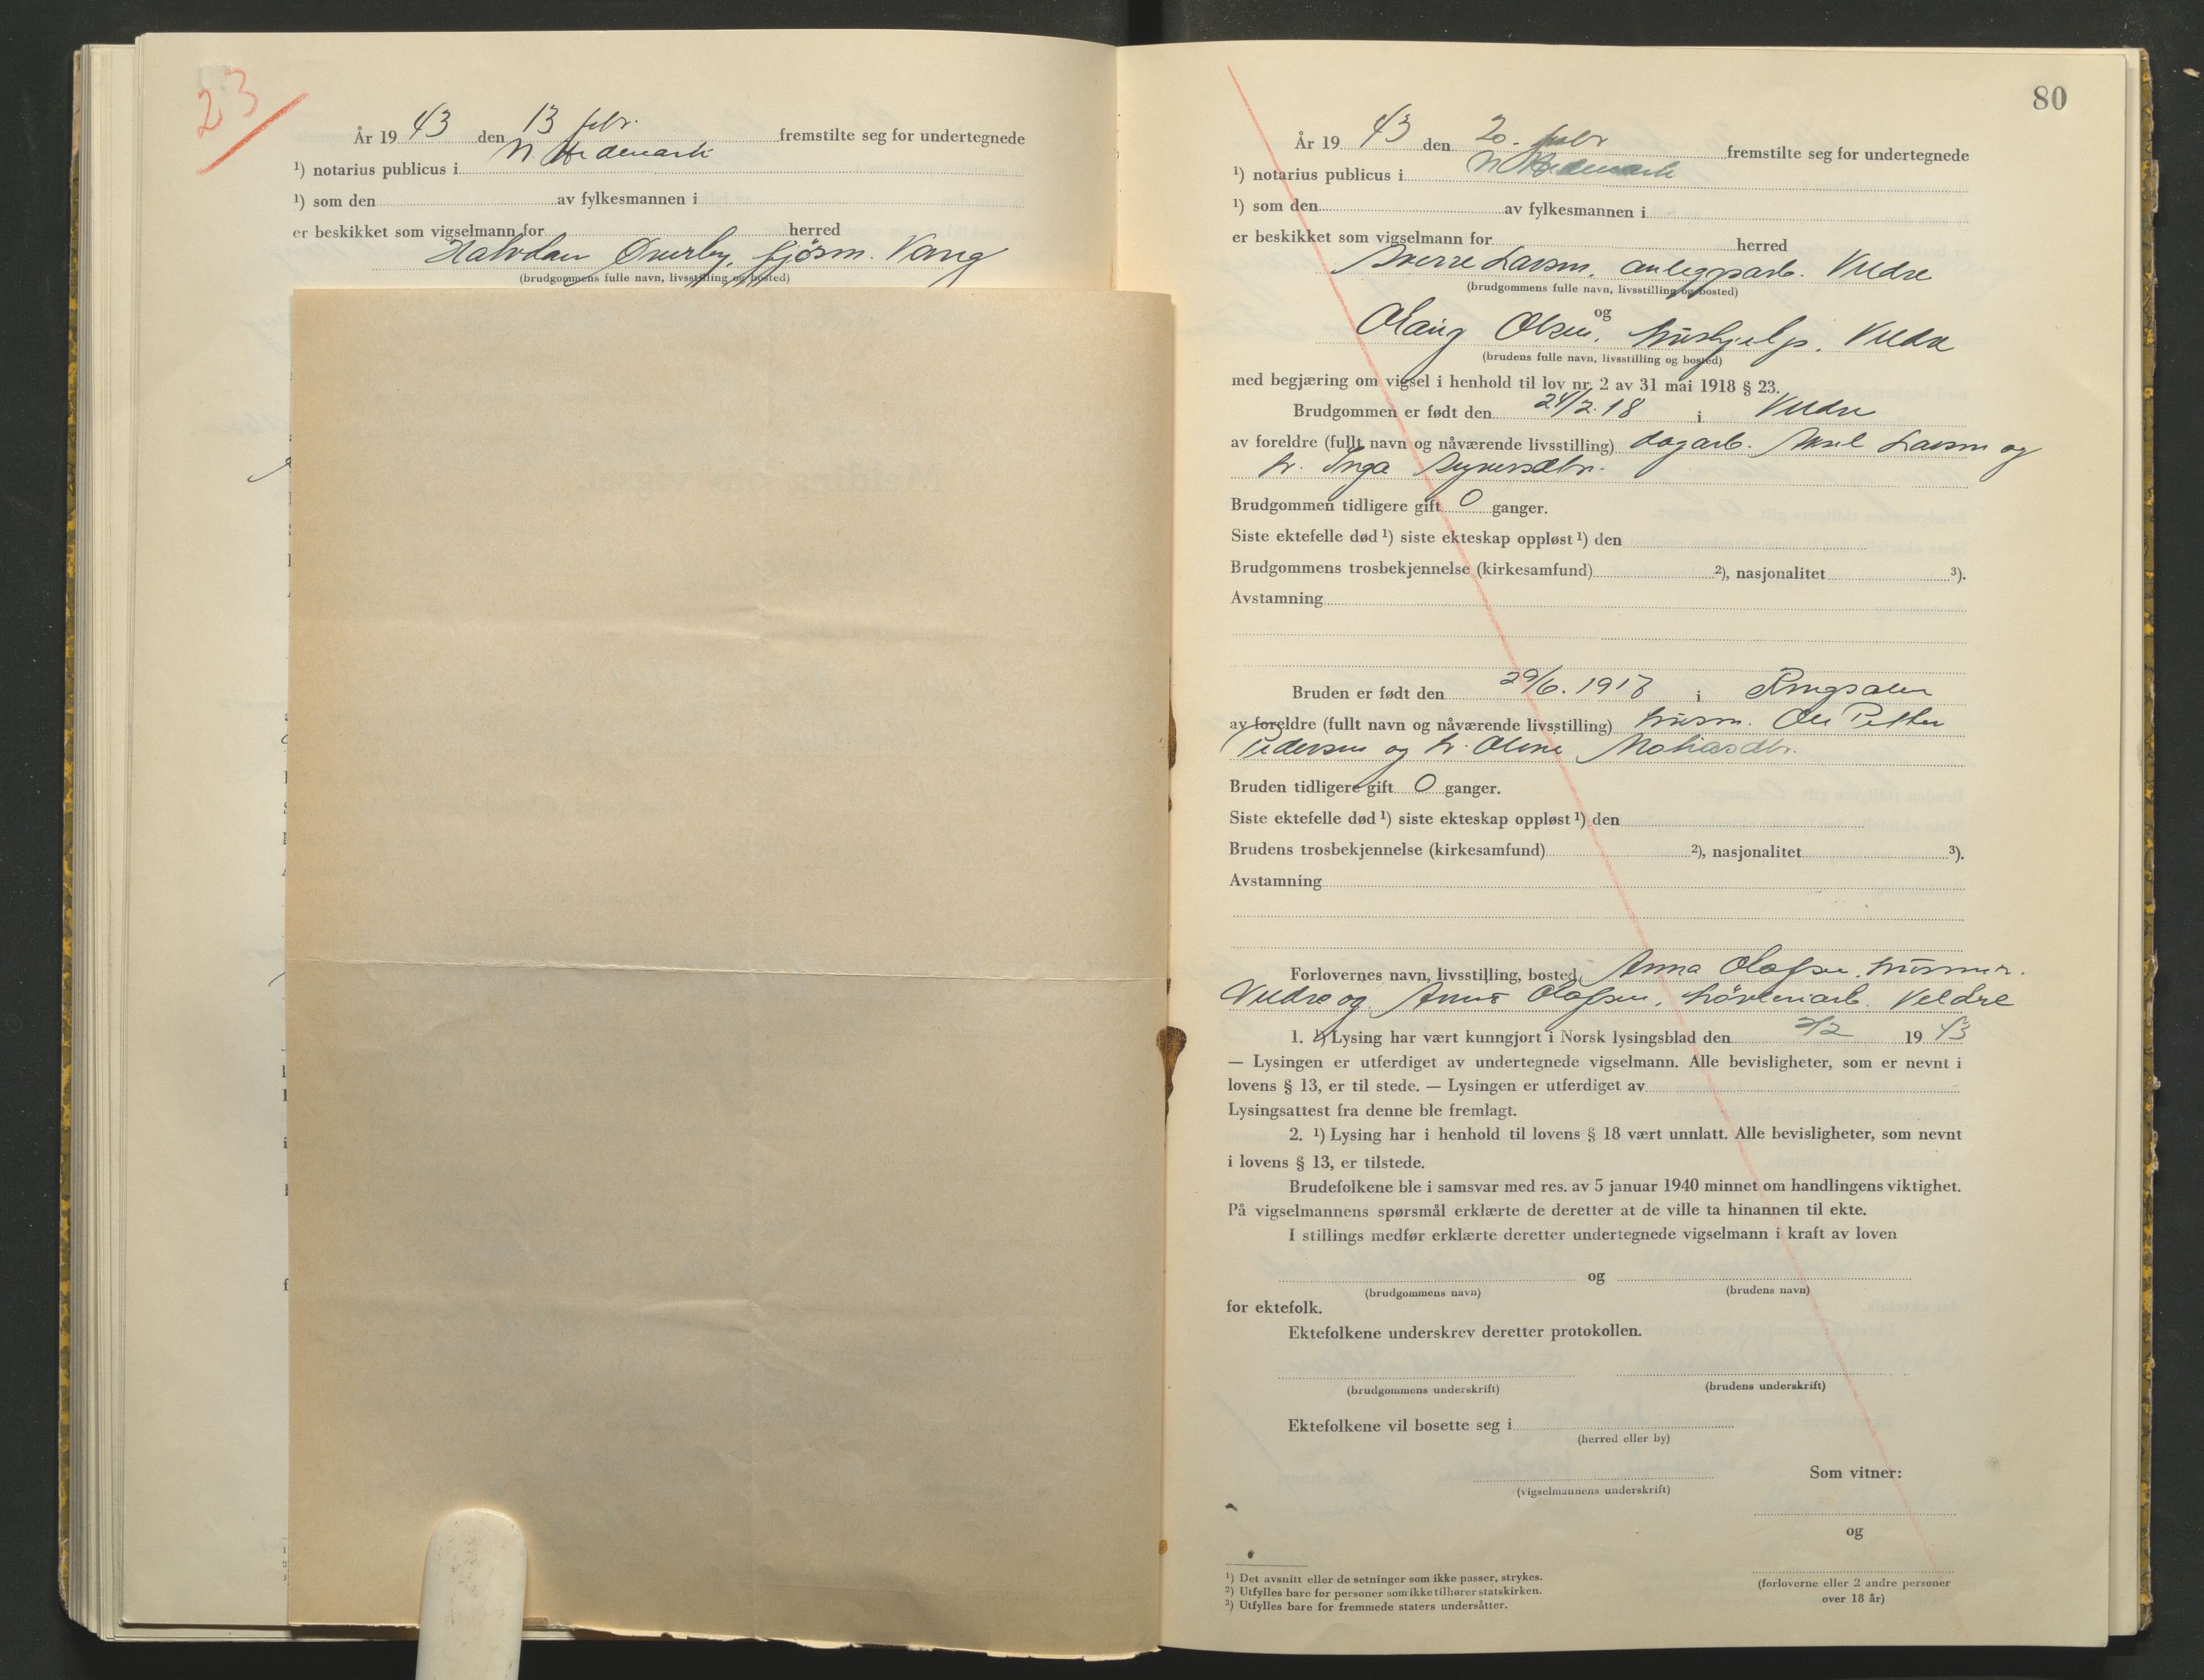 23
År 19 43 den 13 febr. fremstilte seg for undertegnede
¹) notarius publicus i N. Hedemark
¹) som den av fylkesmannen i
er beskikket som vigselmann for herred
Halvdan Øverby, fjösm. Vang
(brudgommens fulle navn, livsstilling og bosted)
80
År 19 43 den 20. febr fremstilte seg for undertegnede
¹) notarius publicus i N Hedemark
¹) som den av fylkesmannen i
er beskikket som vigselmann for herred
Sverre Larsen, anleggsarb. Veldre
(brudgommens fulle navn, livsstilling og bosted)
og
Olaug Olsen, hushjelp, Veldre
(brudens fulle navn, livsstilling og bosted)
med begjæring om vigsel i henhold til lov nr. 2 av 31 mai 1918 § 23.
Brudgommen er født den 24/2.18 i Veldre
av foreldre (fullt navn og nåværende livsstilling) dagarb. Larsen og
h. Inga
Brudgommen tidligere gift 0 ganger.
Siste ektefelle død ¹) siste ekteskap oppløst ¹) den
Brudgommens trosbekjennelse (kirkesamfund) ²), nasjonalitet ³).
Avstamning
Bruden er født den 29/6. 1918 i Ringsaker
av foreldre (fullt navn og nåværende livsstilling) Ole Petter
Pedersen og h. Oline Mathiasdtr.
Bruden tidligere gift 0 ganger.
Siste ektefelle død ¹) siste ekteskap oppløst ¹) den
Brudens trosbekjennelse (kirkesamfund) ²), nasjonalitet ³).
Avstamning
Forlovernes navn, livsstilling, bosted, Anna Olafsen,
Veldre og Olafsen, Veldre
1. ¹) Lysing har vært kunngjort i Norsk lysingsblad den 2/2 19 43
— Lysingen er utferdiget av undertegnede vigselmann. Alle bevisligheter, som er nevnt i
lovens § 13, er til stede. — Lysingen er utferdiget av
Lysingsattest fra denne ble fremlagt.
2. ¹) Lysing har i henhold til lovens § 18 vært unnlatt. Alle bevisligheter, som nevnt
i lovens § 13, er tilstede.
Brudefolkene ble i samsvar med res. av 5 januar 1940 minnet om handlingens viktighet.
På vigselmannens spørsmål erklærte de deretter at de ville ta hinannen til ekte.
I stillings medfør erklærte deretter undertegnede vigselmann i kraft av loven
og
(brudgommens navn) (brudens navn)
for ektefolk.
Ektefolkene underskrev deretter protokollen.
(brudgommens underskrift) (brudens underskrift)
Ektefolkene vil bosette seg i
(herred eller by)
Som vitner:
(vigselmannens underskrift)
og
(forloverne eller 2 andre personer
over 18 år)
¹) Det avsnitt eller de setninger som ikke passer, strykes.
²) Utfylles bare for personer som ikke tilhører statskirken.
³) Utfylles bare for fremmede staters undersåtter.